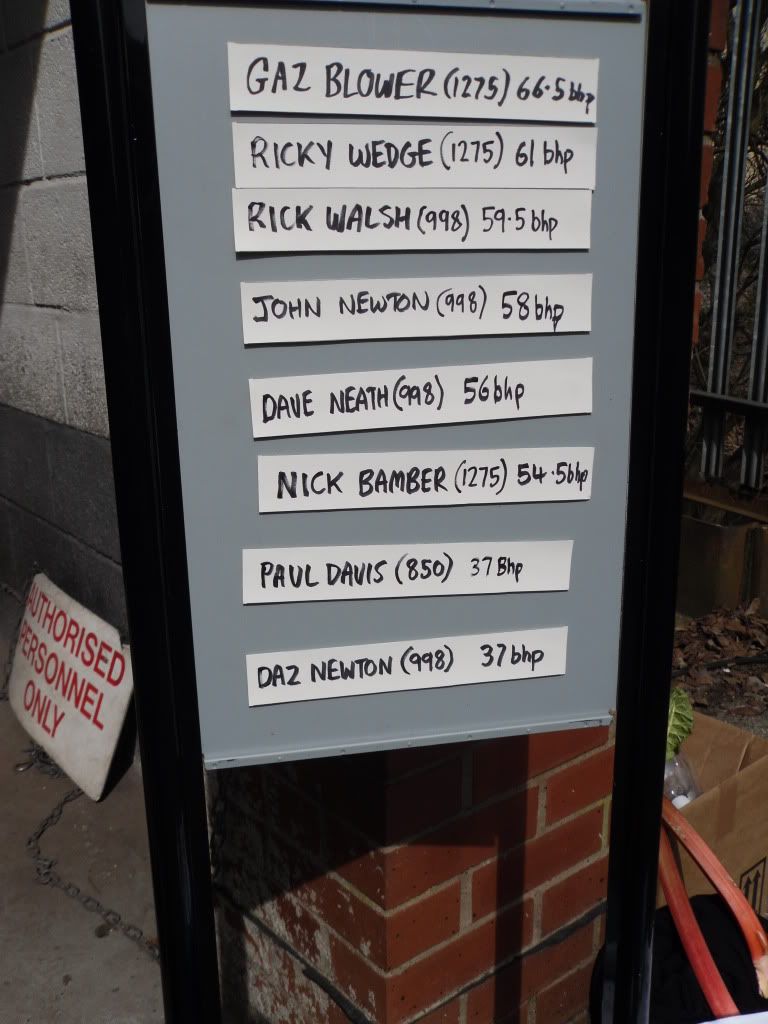 GAZ BLOWER (1275) 66.5 bhp
RICKY WEDGE (1275) 61 bhp
RICK WALSH (998) 59.5 bhp
JOHN NEWTON (998) 58 bhp
DAVE NEATH (998) 56 bhp
NICK BAMBER (1275) 54.5 bhp
PAUL DAVIS (850) 37 Bhp
DAZ NEWTON (998) 37 bhp
AUTHORISED
PERSONNEL
ONLY